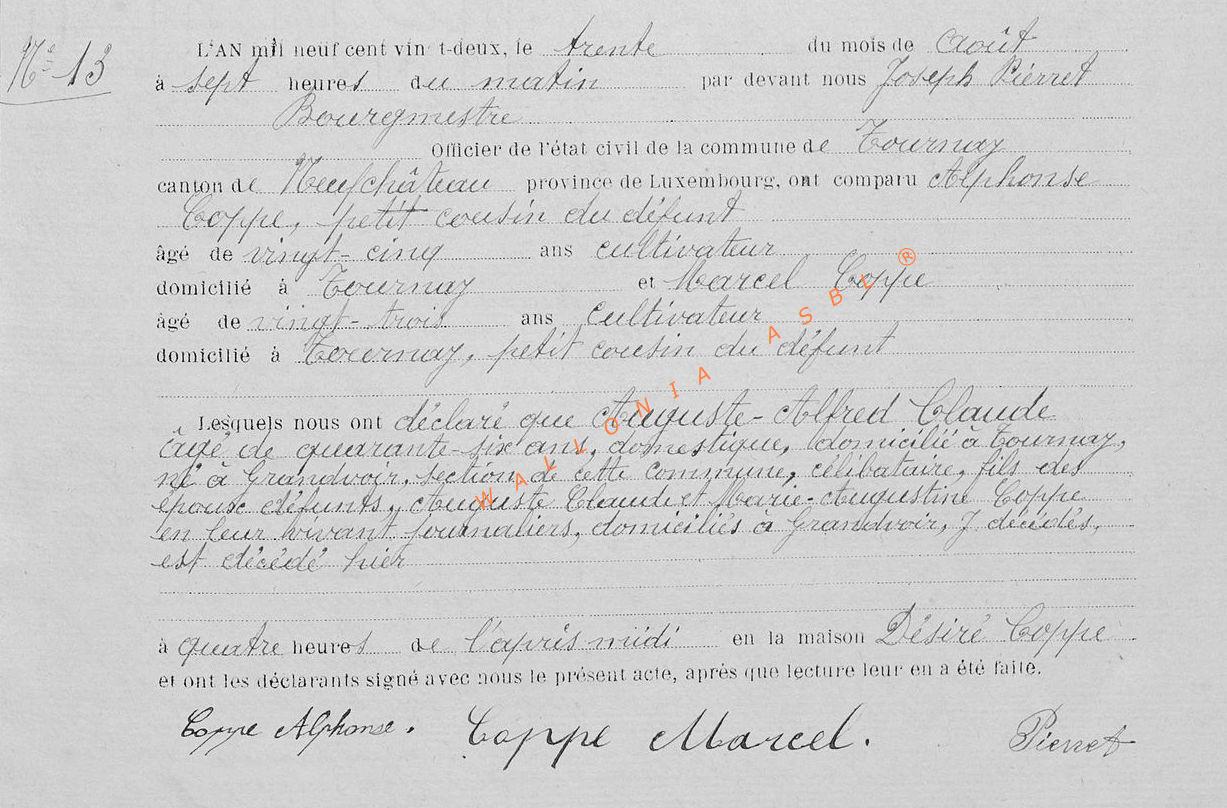 Nº 13
L'AN mil neuf cent vin t-deux, le trente du mois de Août
à sept heures du matin par devant nous Joseph Pierret
Bourgmestre
Officier de l'état civil de la commune de Tournay
canton de Neufchâteau province de Luxembourg, ont comparu Alphonse
Coppe, petit cousin du défunt
âgé de vingt-cinq ans cultivateur
domicilié à Tournay et Marcel Coppe
âgé de vingt-trois ans cultivateur
domicilié à Tournay, petit cousin du défunt
Lesquels nous ont déclaré que Auguste-Alfred Claude
âgé de quarante-six ans, domestique, domicilié à Tournay,
né à Grandvoir, section de cette commune, célibataire, fils des
époux défunts, Auguste Claude et Marie-Augustine Coppe
en leur vivant journaliers, domiciliés à Grandvoir, y décédés,
est décédé hier
à quatre heures de l'après midi en la maison Désiré Coppe
et ont les déclarants signé avec nous le présent acte, après que lecture leur en a été faite.
Coppe Alphonse. Coppe Marcel. Pierret
WALLONIA ASBL ®